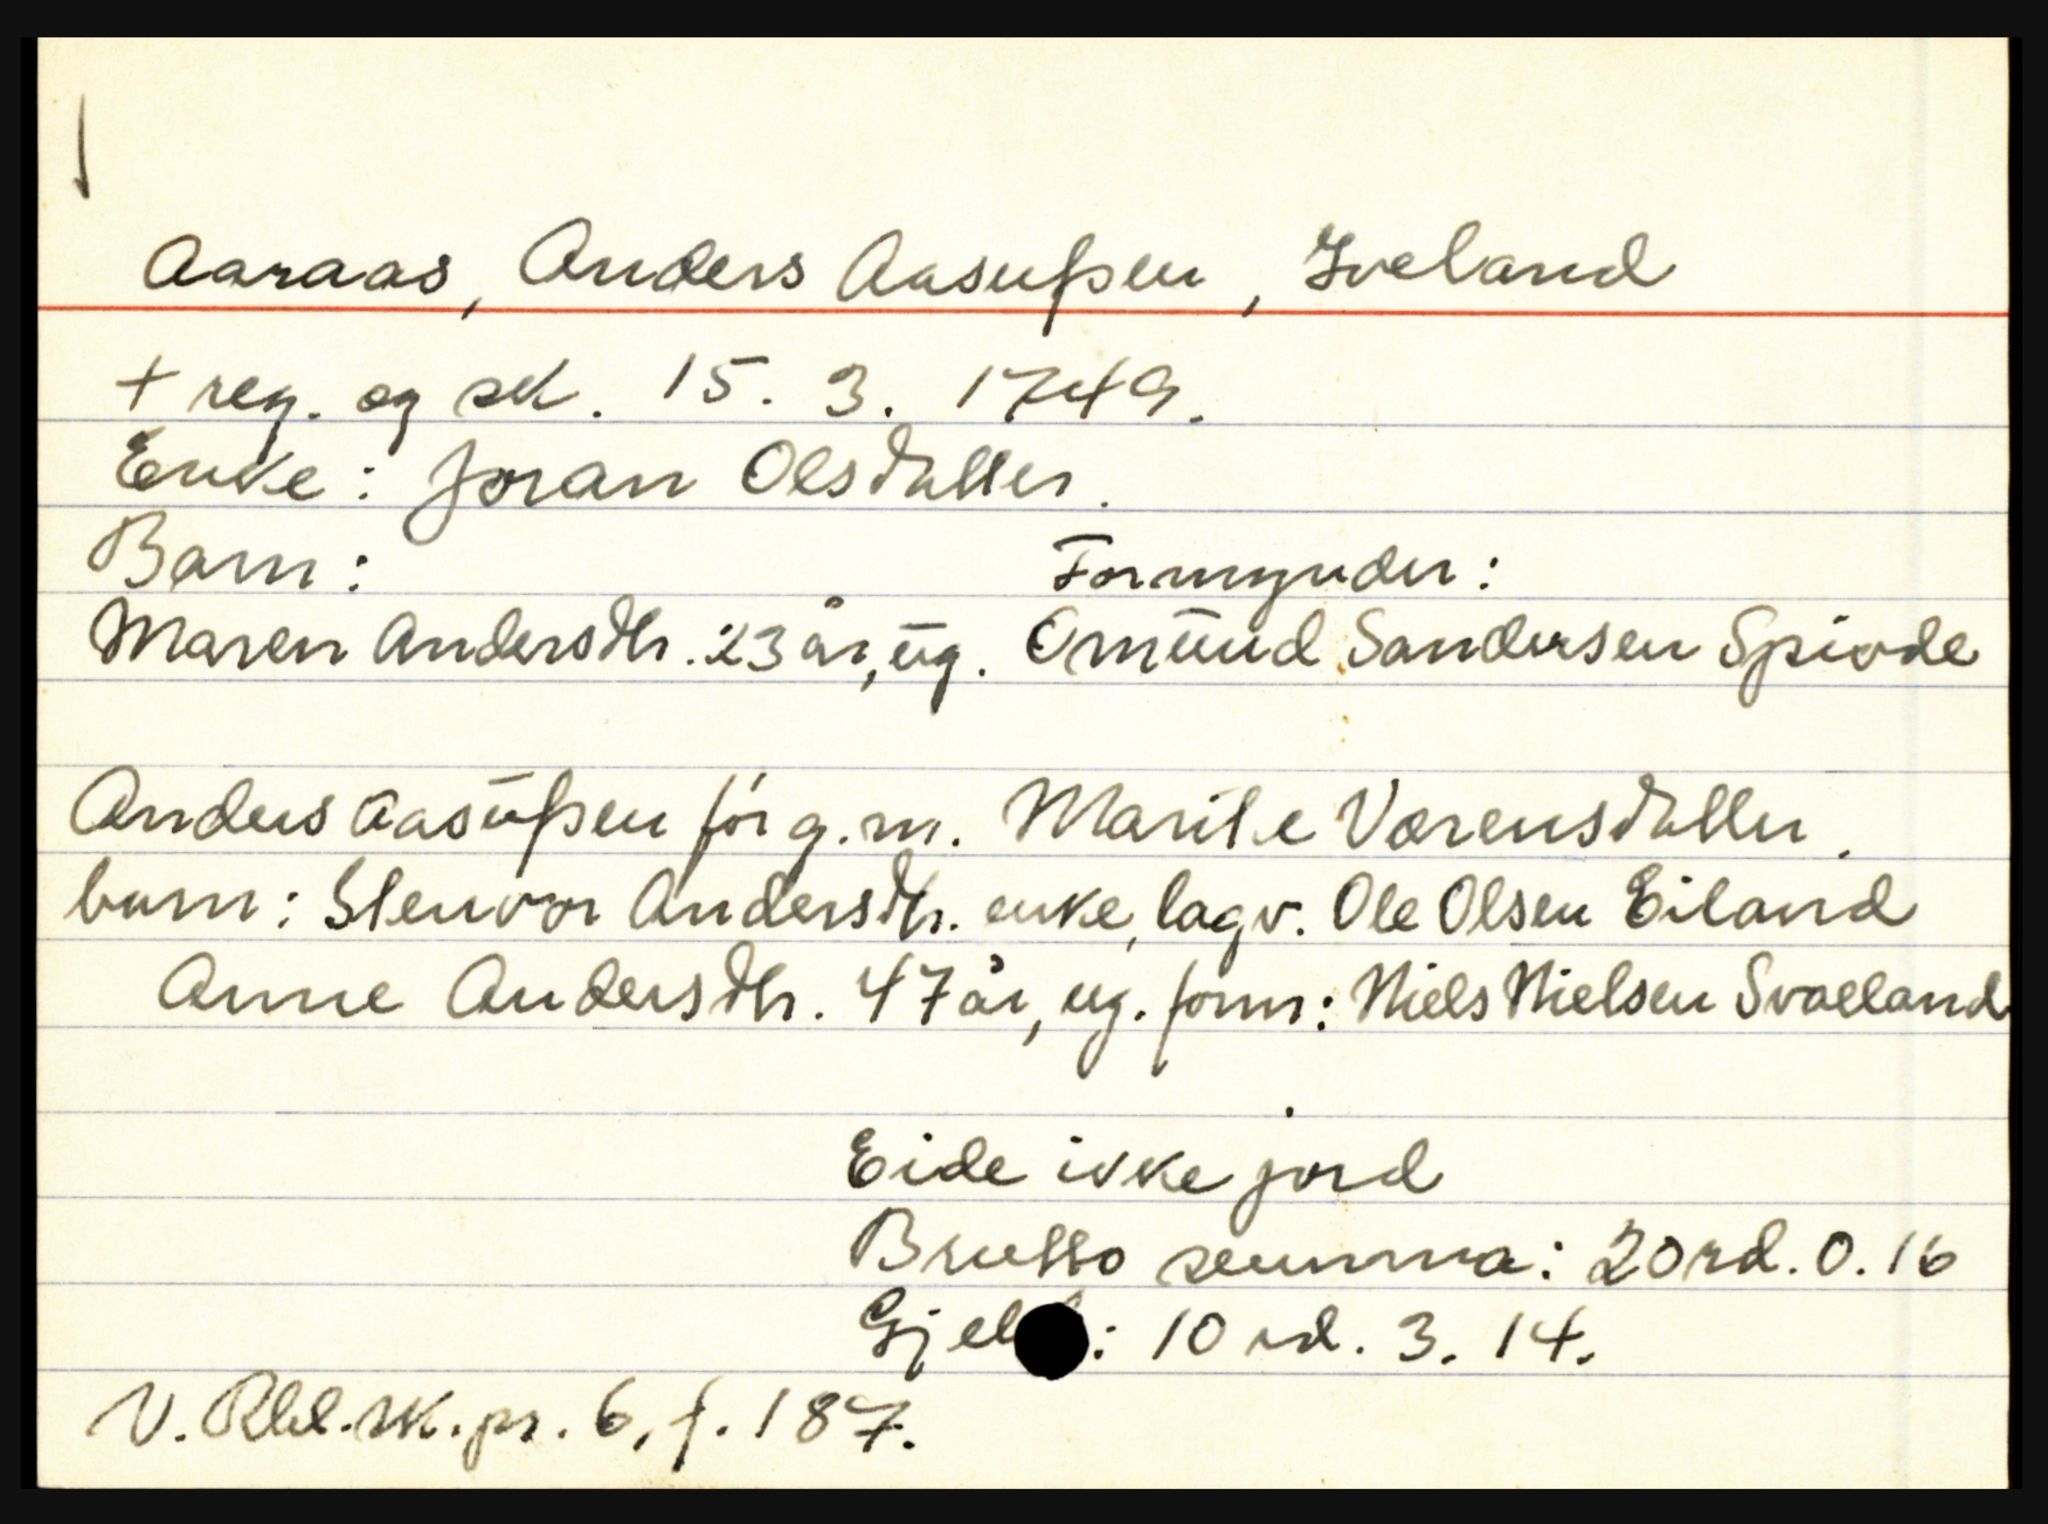 Aaraas, Anders Aasulfsen, Iveland
+ reg. og sk. 15. 3. 1749.
Enke: Joran Olsdatter.
Barn: Formynder:
Maren Andersdtr. 23 år, ug. Omund Sandersen Spiode
Anders Aasulfsen før g. m. Marite Vorensdatter.
barn: Stenvor Andersdtr. enke, lagv. Ole Olsen Eiland
Anne Andersdtr. 47 år, ug. form: Niels Nielsen Svaeland
Eide ikke jord
Brutto summa: 20 rd. 0. 16
Gjel : 10 rd. 3. 14.
V. Rbl. sk. pr. 6, f. 187.